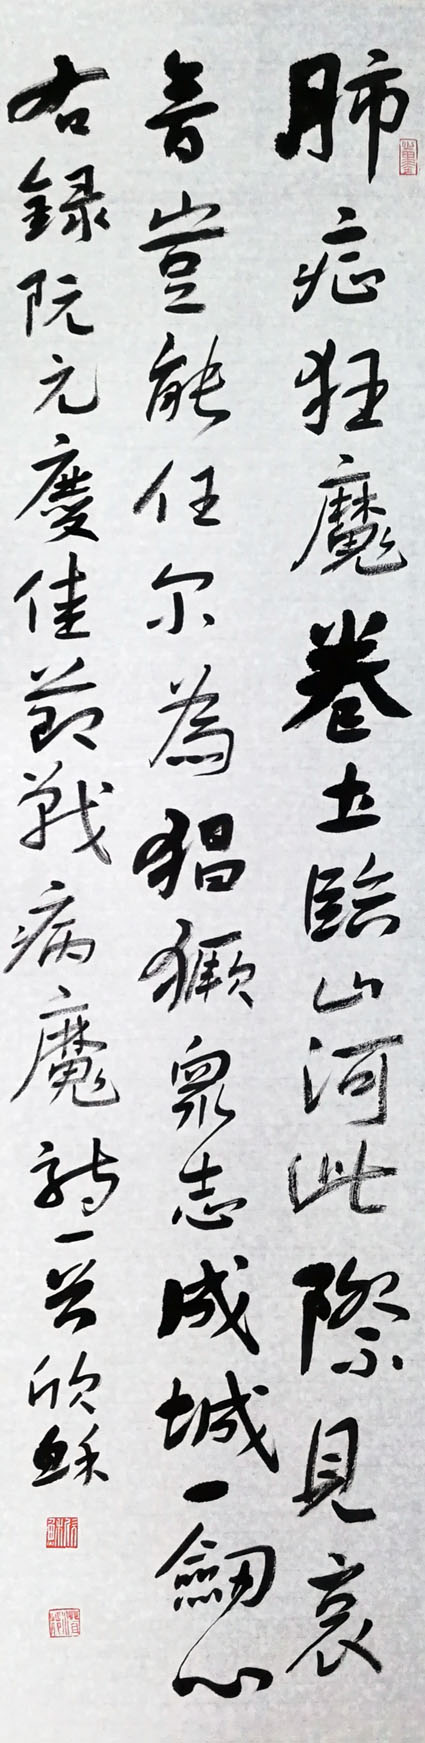 肺症狂魔卷土臨山河此際見哀
音豈能任尔為猖獗衆志成城一劒心
右録阮元慶佳節戰病魔詩一首欣穌